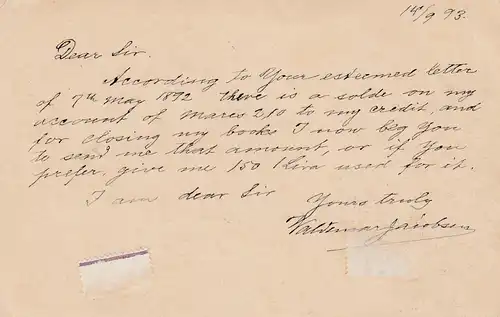 14/9 93.
Dear Sir.
According to Your esteemed letter
of 7th May 1892 there is a solde on my
account of Marcs 210 to my credit, and
for closing my books I now beg You
to send me that amount, or if You
prefer, give me 150 Kiva used for it.
I am dear Sir
Yours truly
Valdemar Jacobsen